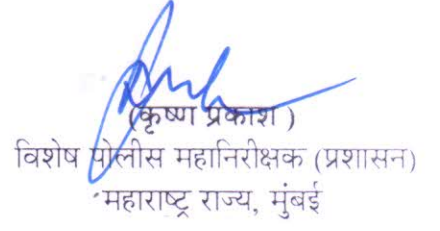 (कृष्ण प्रकाश )
विशेष पोलीस महानिरीक्षक (प्रशासन)
महाराष्ट्र राज्य, मुंबई